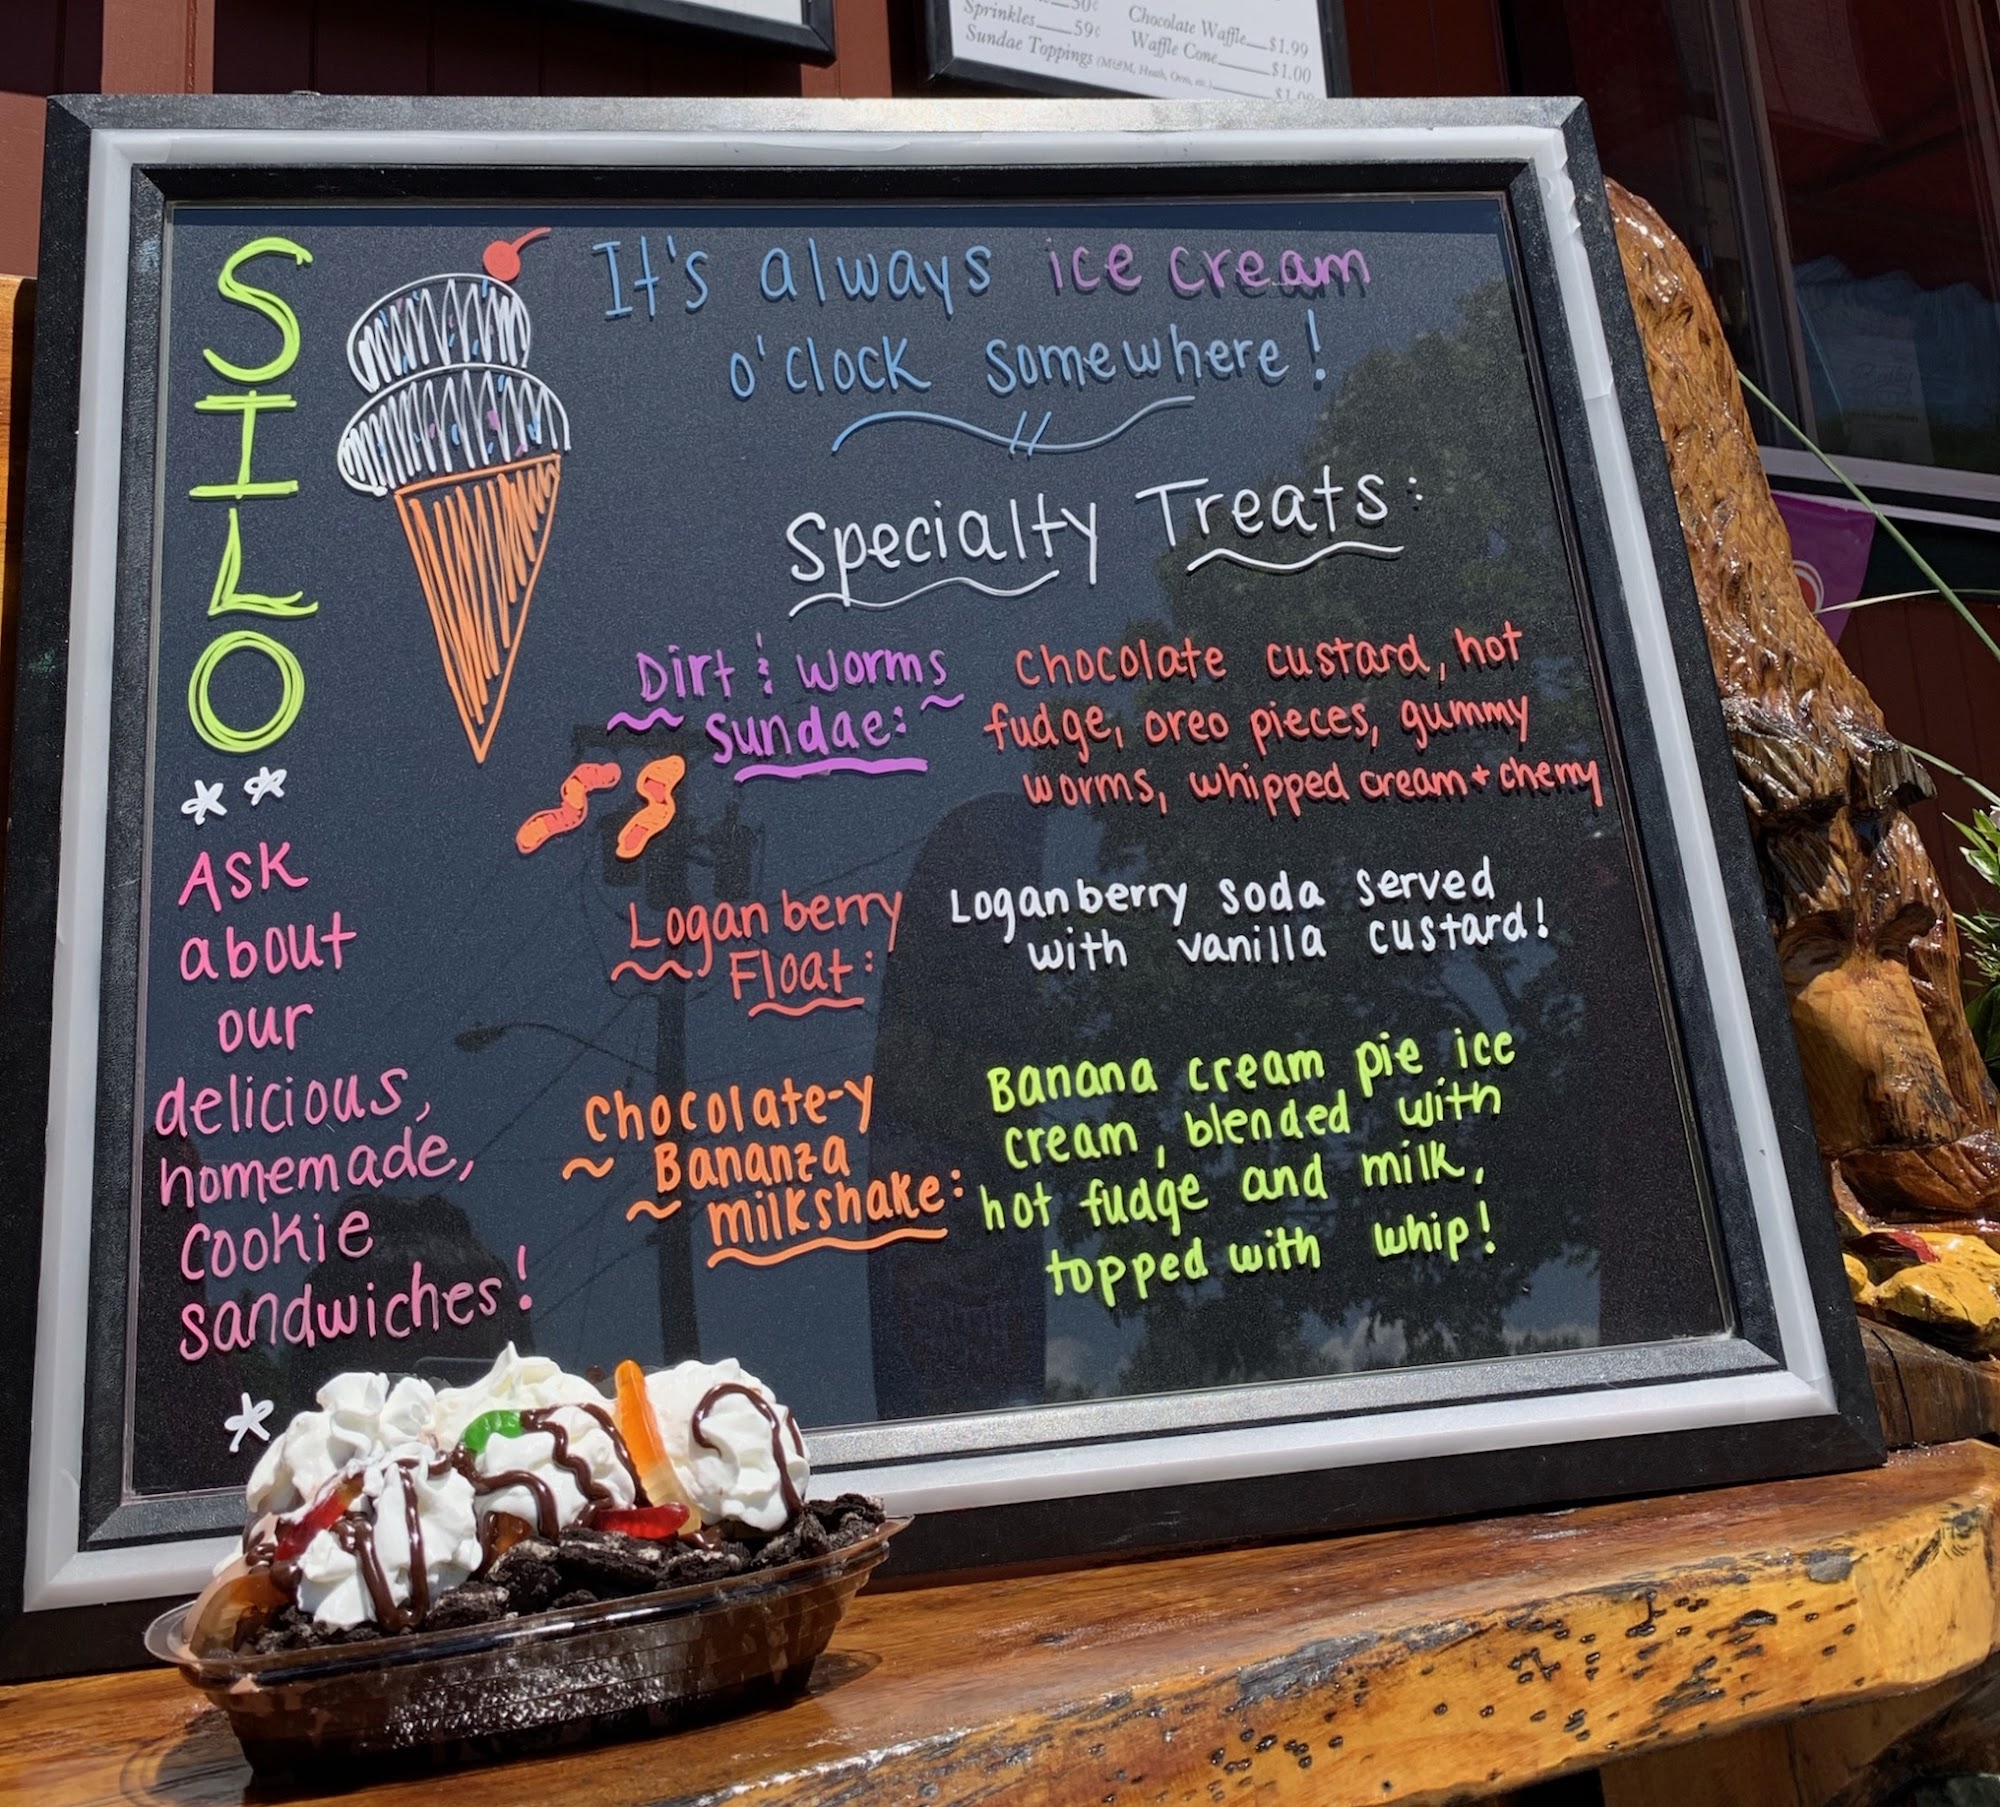 50¢
Sprinkles 59¢
Sundae Toppings (M&M, Heath, Oreo, etc.) $1.00
Chocolate Waffle $1.99
Waffle Cone $1.00
SILO
Ask
about
our
delicious,
homemade,
cookie
sandwiches!
It's always ice cream
o'clock somewhere!
Specialty Treats:
Dirt & worms
sundae:
Chocolate custard, hot
fudge, oreo pieces, gummy
worms, whipped cream + cherry
Loganberry
Float:
Loganberry soda served
with vanilla custard!
Chocolate-y
Bananza
milkshake:
Banana cream pie ice
cream, blended with
hot fudge and milk,
topped with whip!